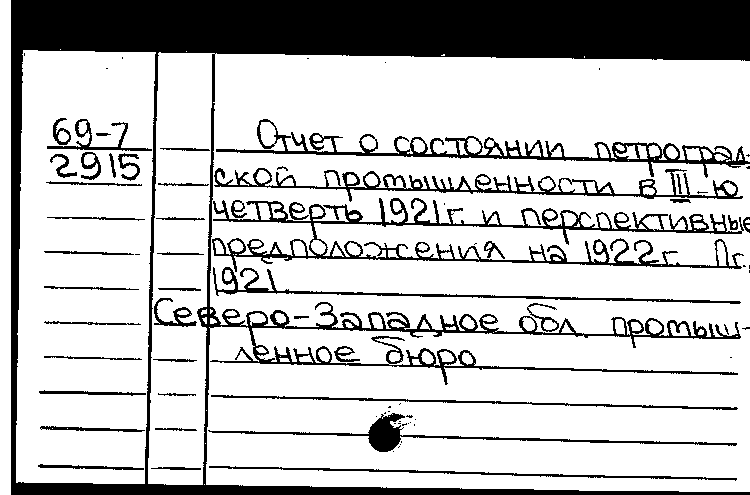 69-7
2915
Отчет о состоянии петроград-
ской промышленности в III-ю
четверть 1921г. и перспективные
предположения на 1922г. Пг.,
1921.
Северо-Западное обл. промыш-
ленное бюро